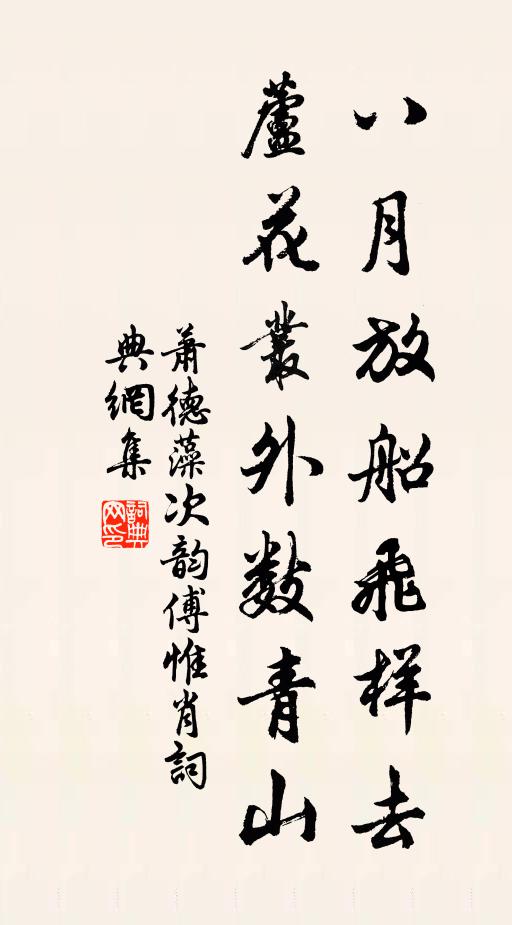 八月放船飛样去
蘆花叢外数青山
萧德藻次韵傅惟肖詞
典網集
詞典网印